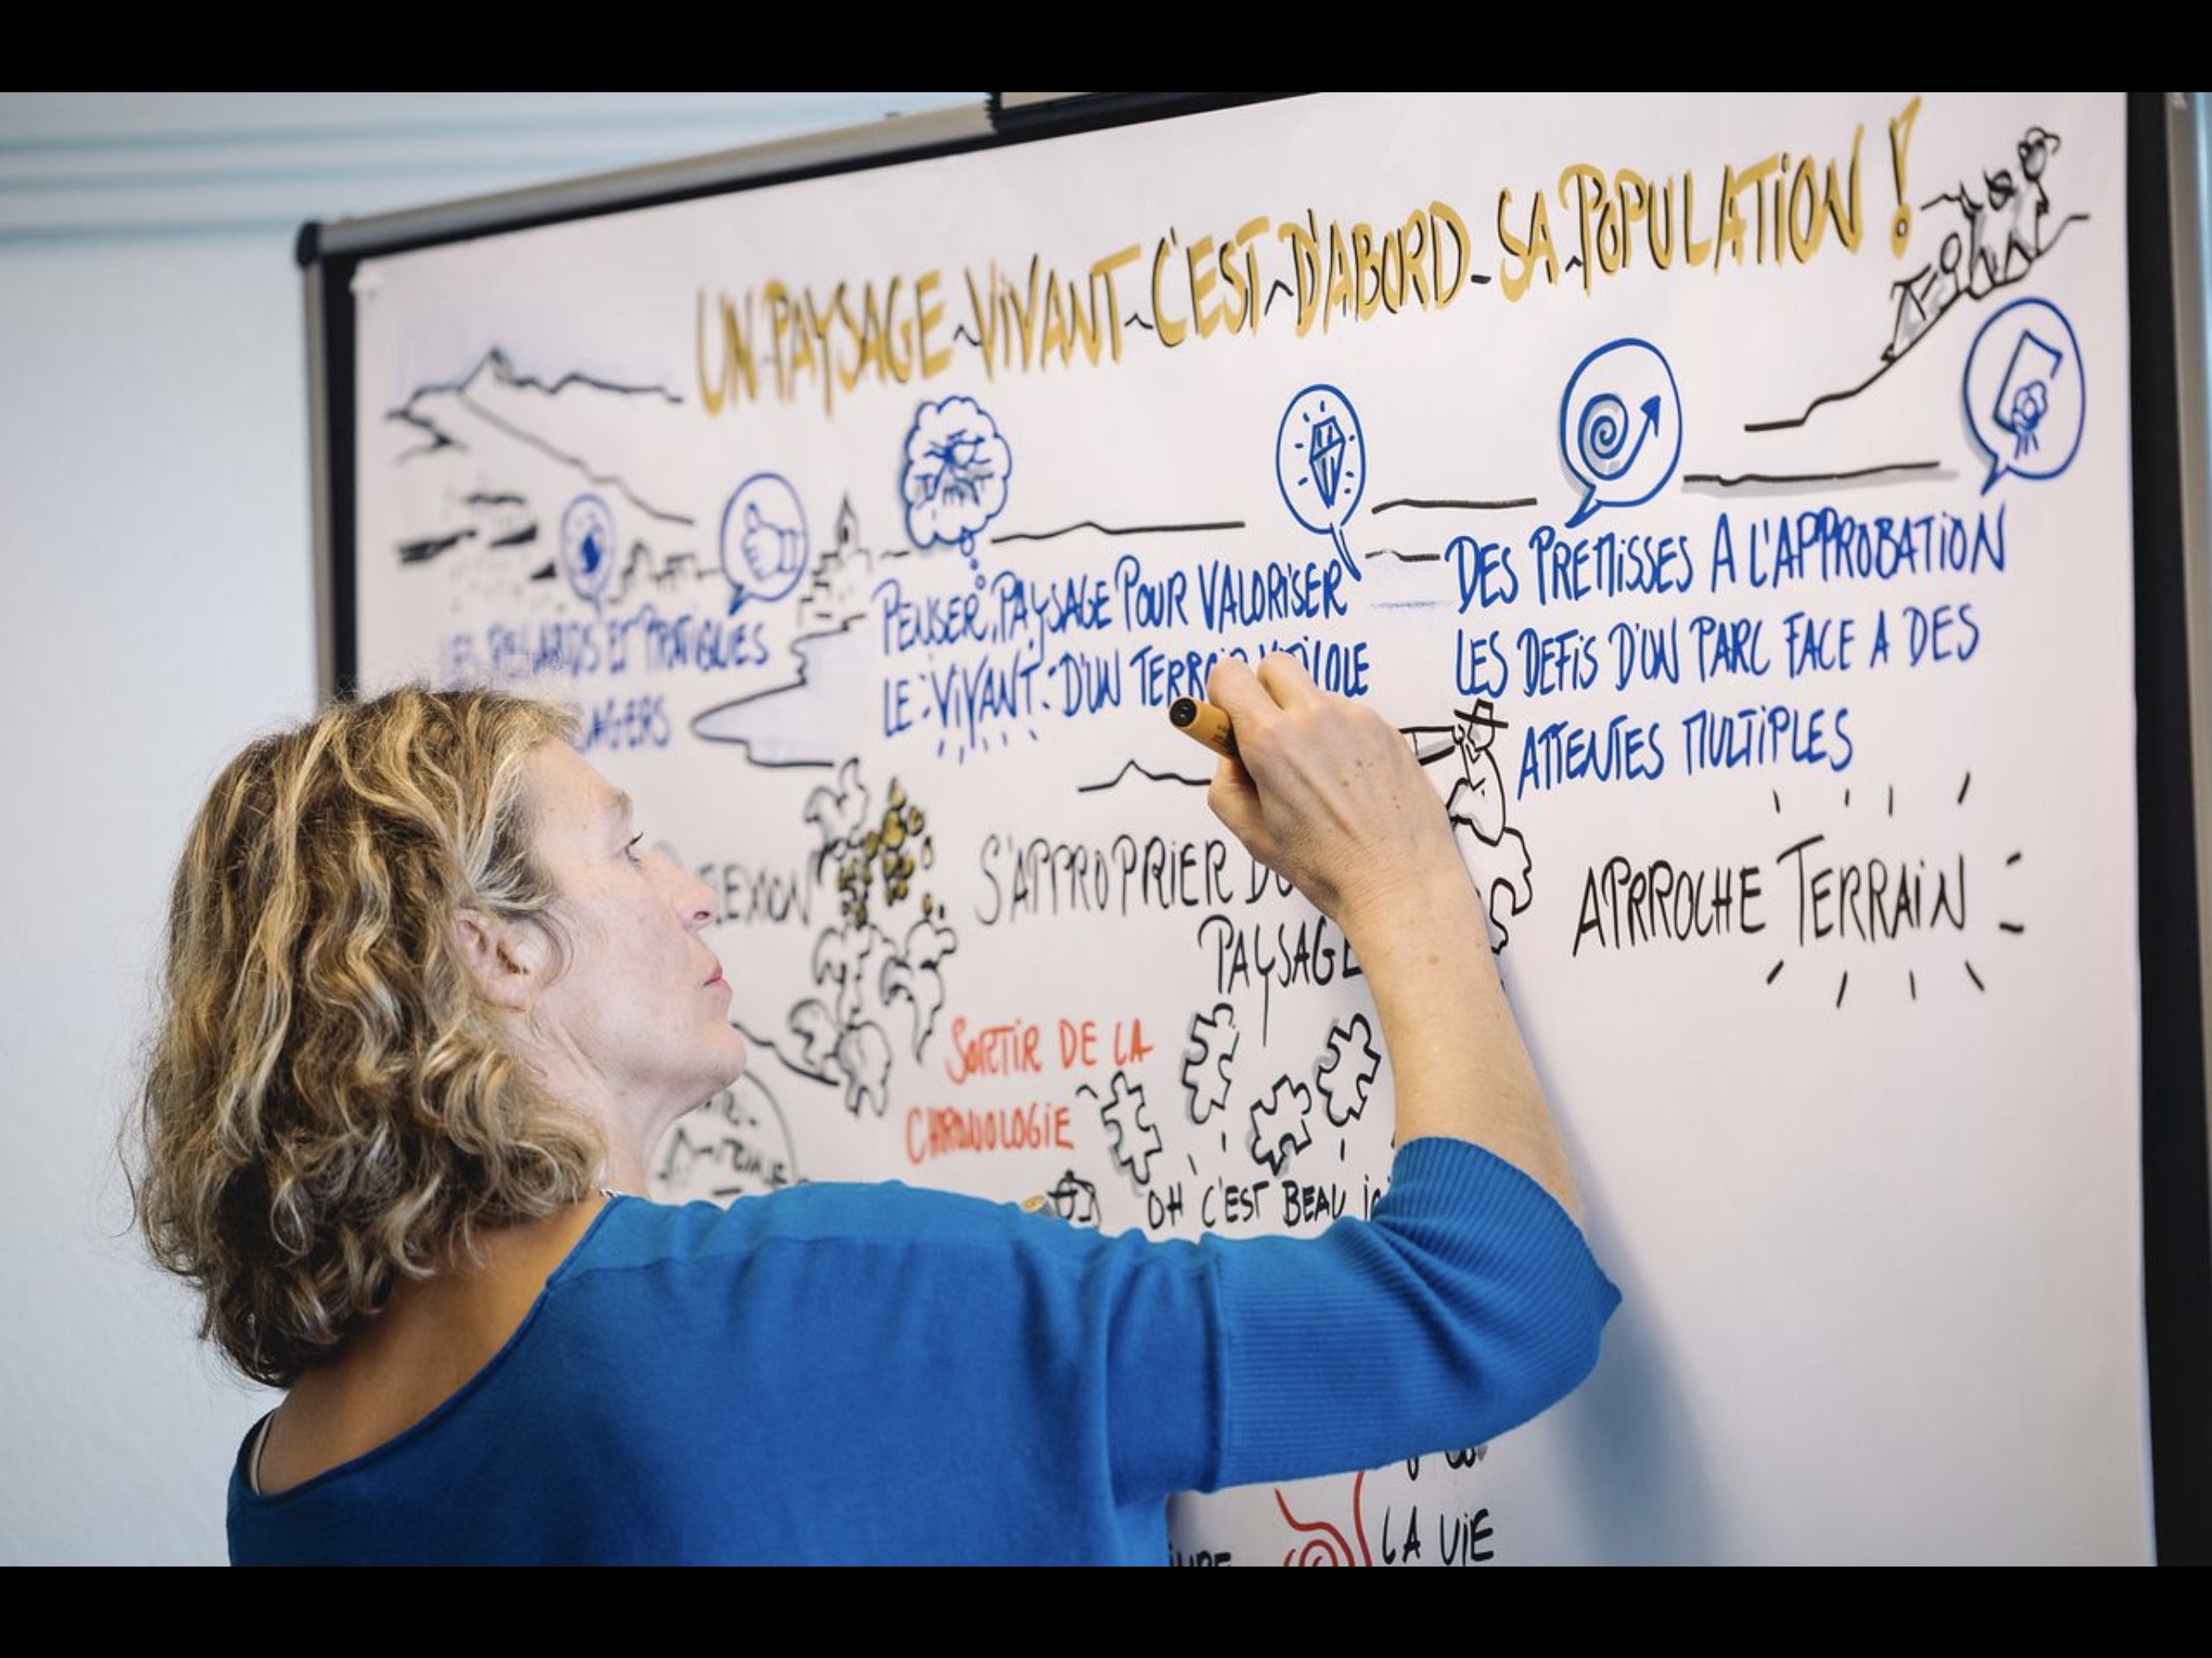 UN PAYSAGE VIVANT C'EST D'ABORD SA POPULATION !
LES REGARDS ET PRATIQUES
PENSER PAYSAGE POUR VALORISER
LE VIVANT D'UN
DES PREMISSES A L'APPROBATION
LES DEFIS D'UN PARC FACE A DES
ATTENTES MULTIPLES
S'APPROPRIER
PAYSAGE
APPROCHE TERRAIN
SORTIR DE LA
CHRONOLOGIE
OH C'EST BEAU
LA VIE